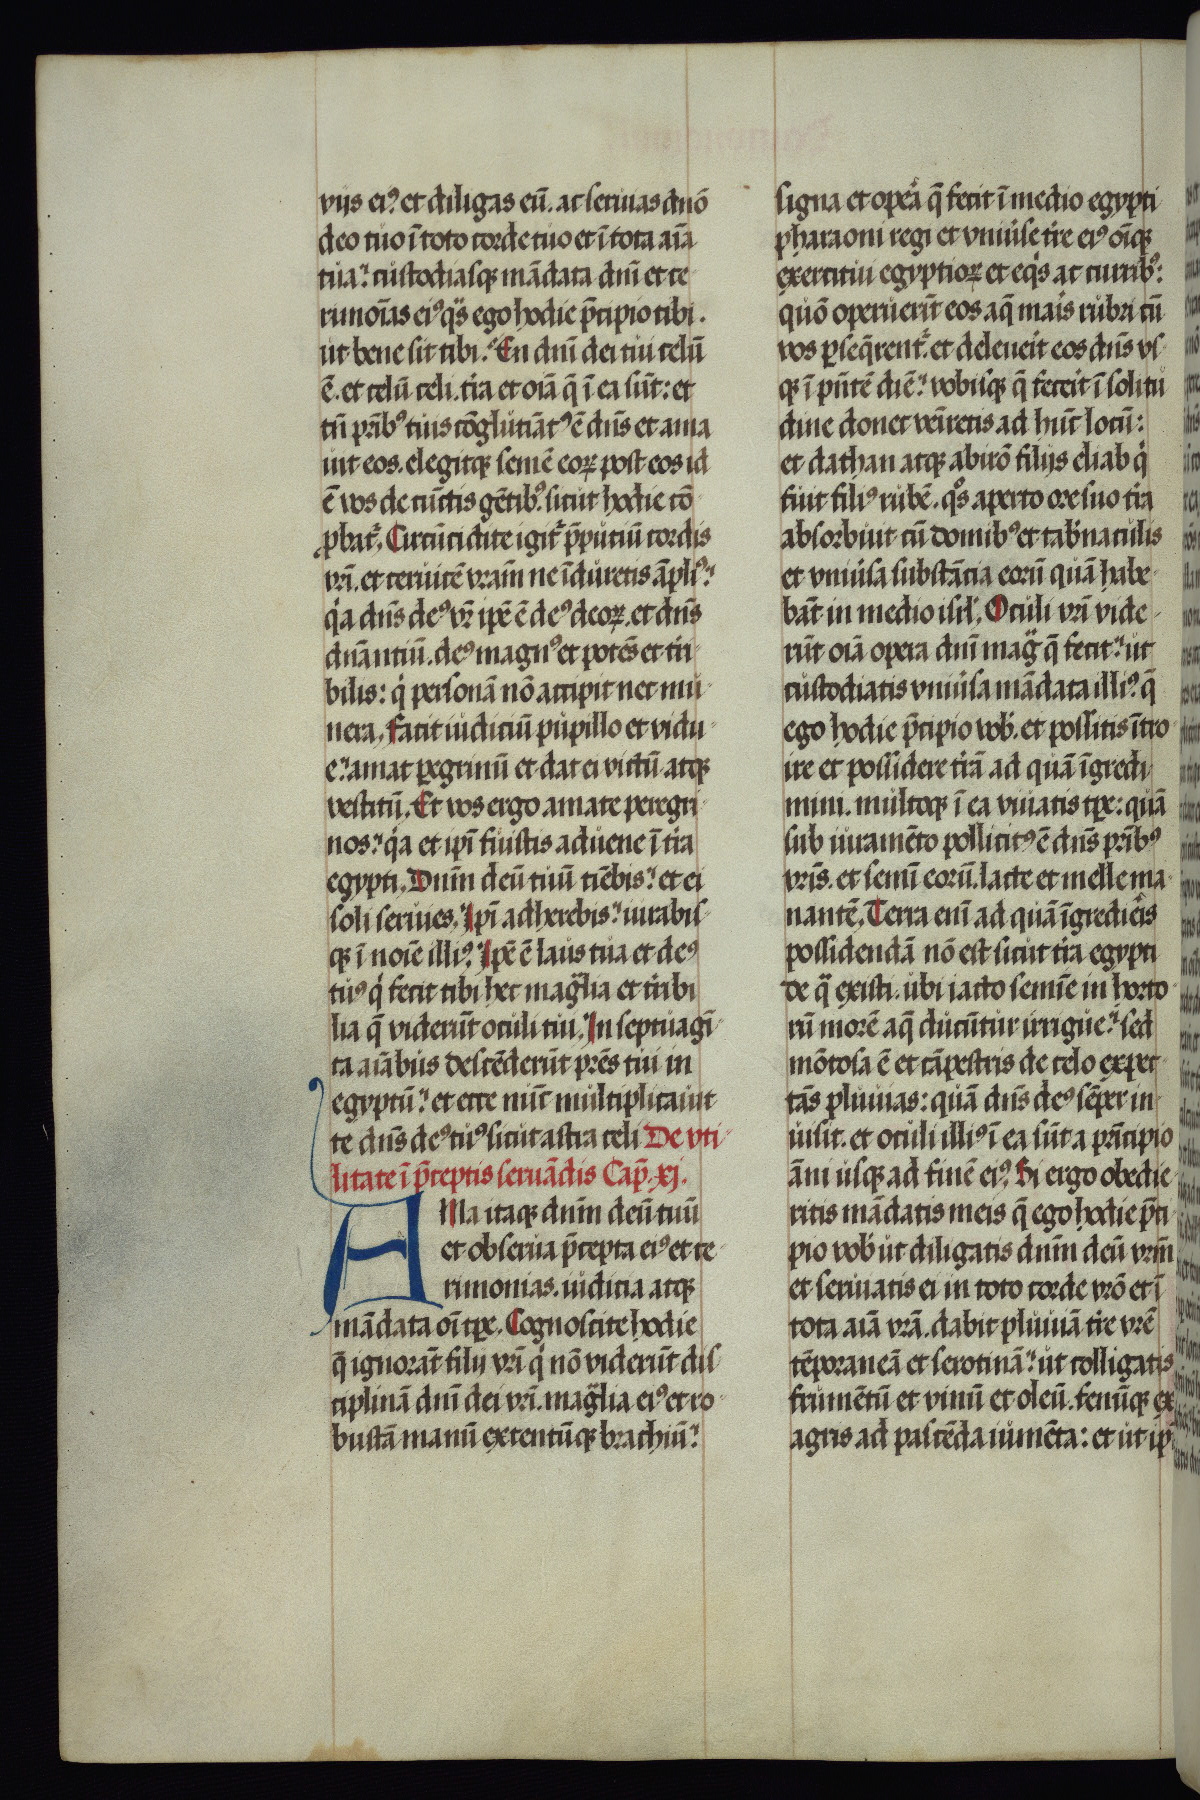 viis eiꝰ et diligas eū. ac seruias dn̄o
deo tuo ī toto corde tuo et ī tota aīa
tua. custodiasqꝫ mādata dn̄i et ce
rimōias eiꝰ q̄s ego hodie p̄cipio tibi.
ut bene sit tibi. En dn̄i dei tui celū
ē. et celū celi. t̄ra et oīa q̄ ī ea sūt: et
tn̄ prībꝰ tuis cōglutīatꝰ ē dn̄s et ama
uit eos. elegitqꝫ semē eoꝝ post eos id
ē vos de cūctis gētibꝰ. sicut hodie cō
ꝓbat̄. Circūcidite igit̄ p̄putiū cordis
vrī. et ceruicē vrām ne īduretis āpliꝰ.
q̇a dn̄s deꝰ vr̄ ip̄e ē deꝰ deoꝝ. et dn̄s
dn̄antiū. deꝰ magnꝰ et potēs et t̄ri
bilis: q̇ personā nō accipit nec mu
nera. facit iudiciū pupillo et vidu
e. amat ꝑegrinū et dat ei victū atqꝫ
vestitū. Et vos ergo amate peregri
nos. q̇a et ip̄i fuistis aduene ī t̄ra
egypti. Dn̄m deū tuū timebis. et ei
soli seruies. Ip̄i adherebis. iurabis
qꝫ ī noīe illiꝰ. Ip̄e ē laus tua et deꝰ
tuꝰ q̇ fecit tibi hec mag̈lia et t̄ribi
lia q̄ viderūt oculi tui. In septuagī
ta aīabus descēderūt pr̄es tui in
egyptū. et ecce nūc multiplicauit
te dn̄s deꝰ tuꝰ sicut astra celi De vti
litate ī p̄ceptis seruādis Cap̄. xj.
AMa itaqꝫ dn̄m deū tuū
et obserua p̄cepta eiꝰ et ce
rimonias. iudicia atqꝫ
mādata oī tꝑe. Cognoscite hodie
q̄ ignorāt filij vrī q̇ nō viderūt dis
ciplinā dn̄i dei vrī. mag̈lia eiꝰ et ro
bustā manū extentūqꝫ brachiū.
signa et opera q̄ fecit ī medio egypti
pharaoni regi et vniu̇se t̄re eiꝰ oīqꝫ
exercitui egyptioꝝ et eq̇s ac curribꝰ:
quō operuerūt eos aq̄ maris rubri cū
vos ꝑseq̄rent̄. et deleuerit eos dn̄s vs
qꝫ ī pn̄tē diē. vobisqꝫ q̄ fecerit ī solitu
dine donec veniretis ad hūc locū:
et dathan atqꝫ abirō filijs eliab q̇
fuit filiꝰ rubē. q̊s aperto ore suo t̄ra
absorbuit cū domibꝰ et tab̄naculis
et vniu̇sa substātia eorū quā habe
bāt in medio isrl̄. Oculi vrī vide
rūt oīa opera dn̄i mag̈ q̄ fecit. ut
custodiatis vniu̇sa mādata illiꝰ. q̄
ego hodie p̄cipio vob̄. et possitis ītro
ire et possidere t̄rā ad quā īgredi
mini. multoqꝫ ī ea viuatis tꝑe: quā
sub iuramēto pollicitꝰ ē dn̄s prībꝰ
vrīs. et semī eorū. lacte et melle ma
nantē. Terra enī ad quā īgredieīs
possidendā nō est sicut t̄ra egypti
de q̄ existi. ubi iacto semīe in horto
rū morē aq̄ ducūtur irrigue. sed
mōtosa ē et cāpestris de celo expec
tās pluuias: quā dn̄s deꝰ sēper in
uisit. et oculi illiꝰ ī ea sūt a prīcipio
āni usqꝫ ad finē eiꝰ. Si ergo obedie
ritis mādatis meis q̄ ego hodie p̄ci
pio vob̄ ut diligatis dn̄m deū vrm̄
et seruiatis ei in toto corde vrō et ī
tota aīa vrā. dabit pluuiā t̄re vrē
tēporaneā et serotinā. ut colligatis
frumētū et vinū et oleū. fenūqꝫ ex
agris ad pascēda iumēta: et ut ip̄